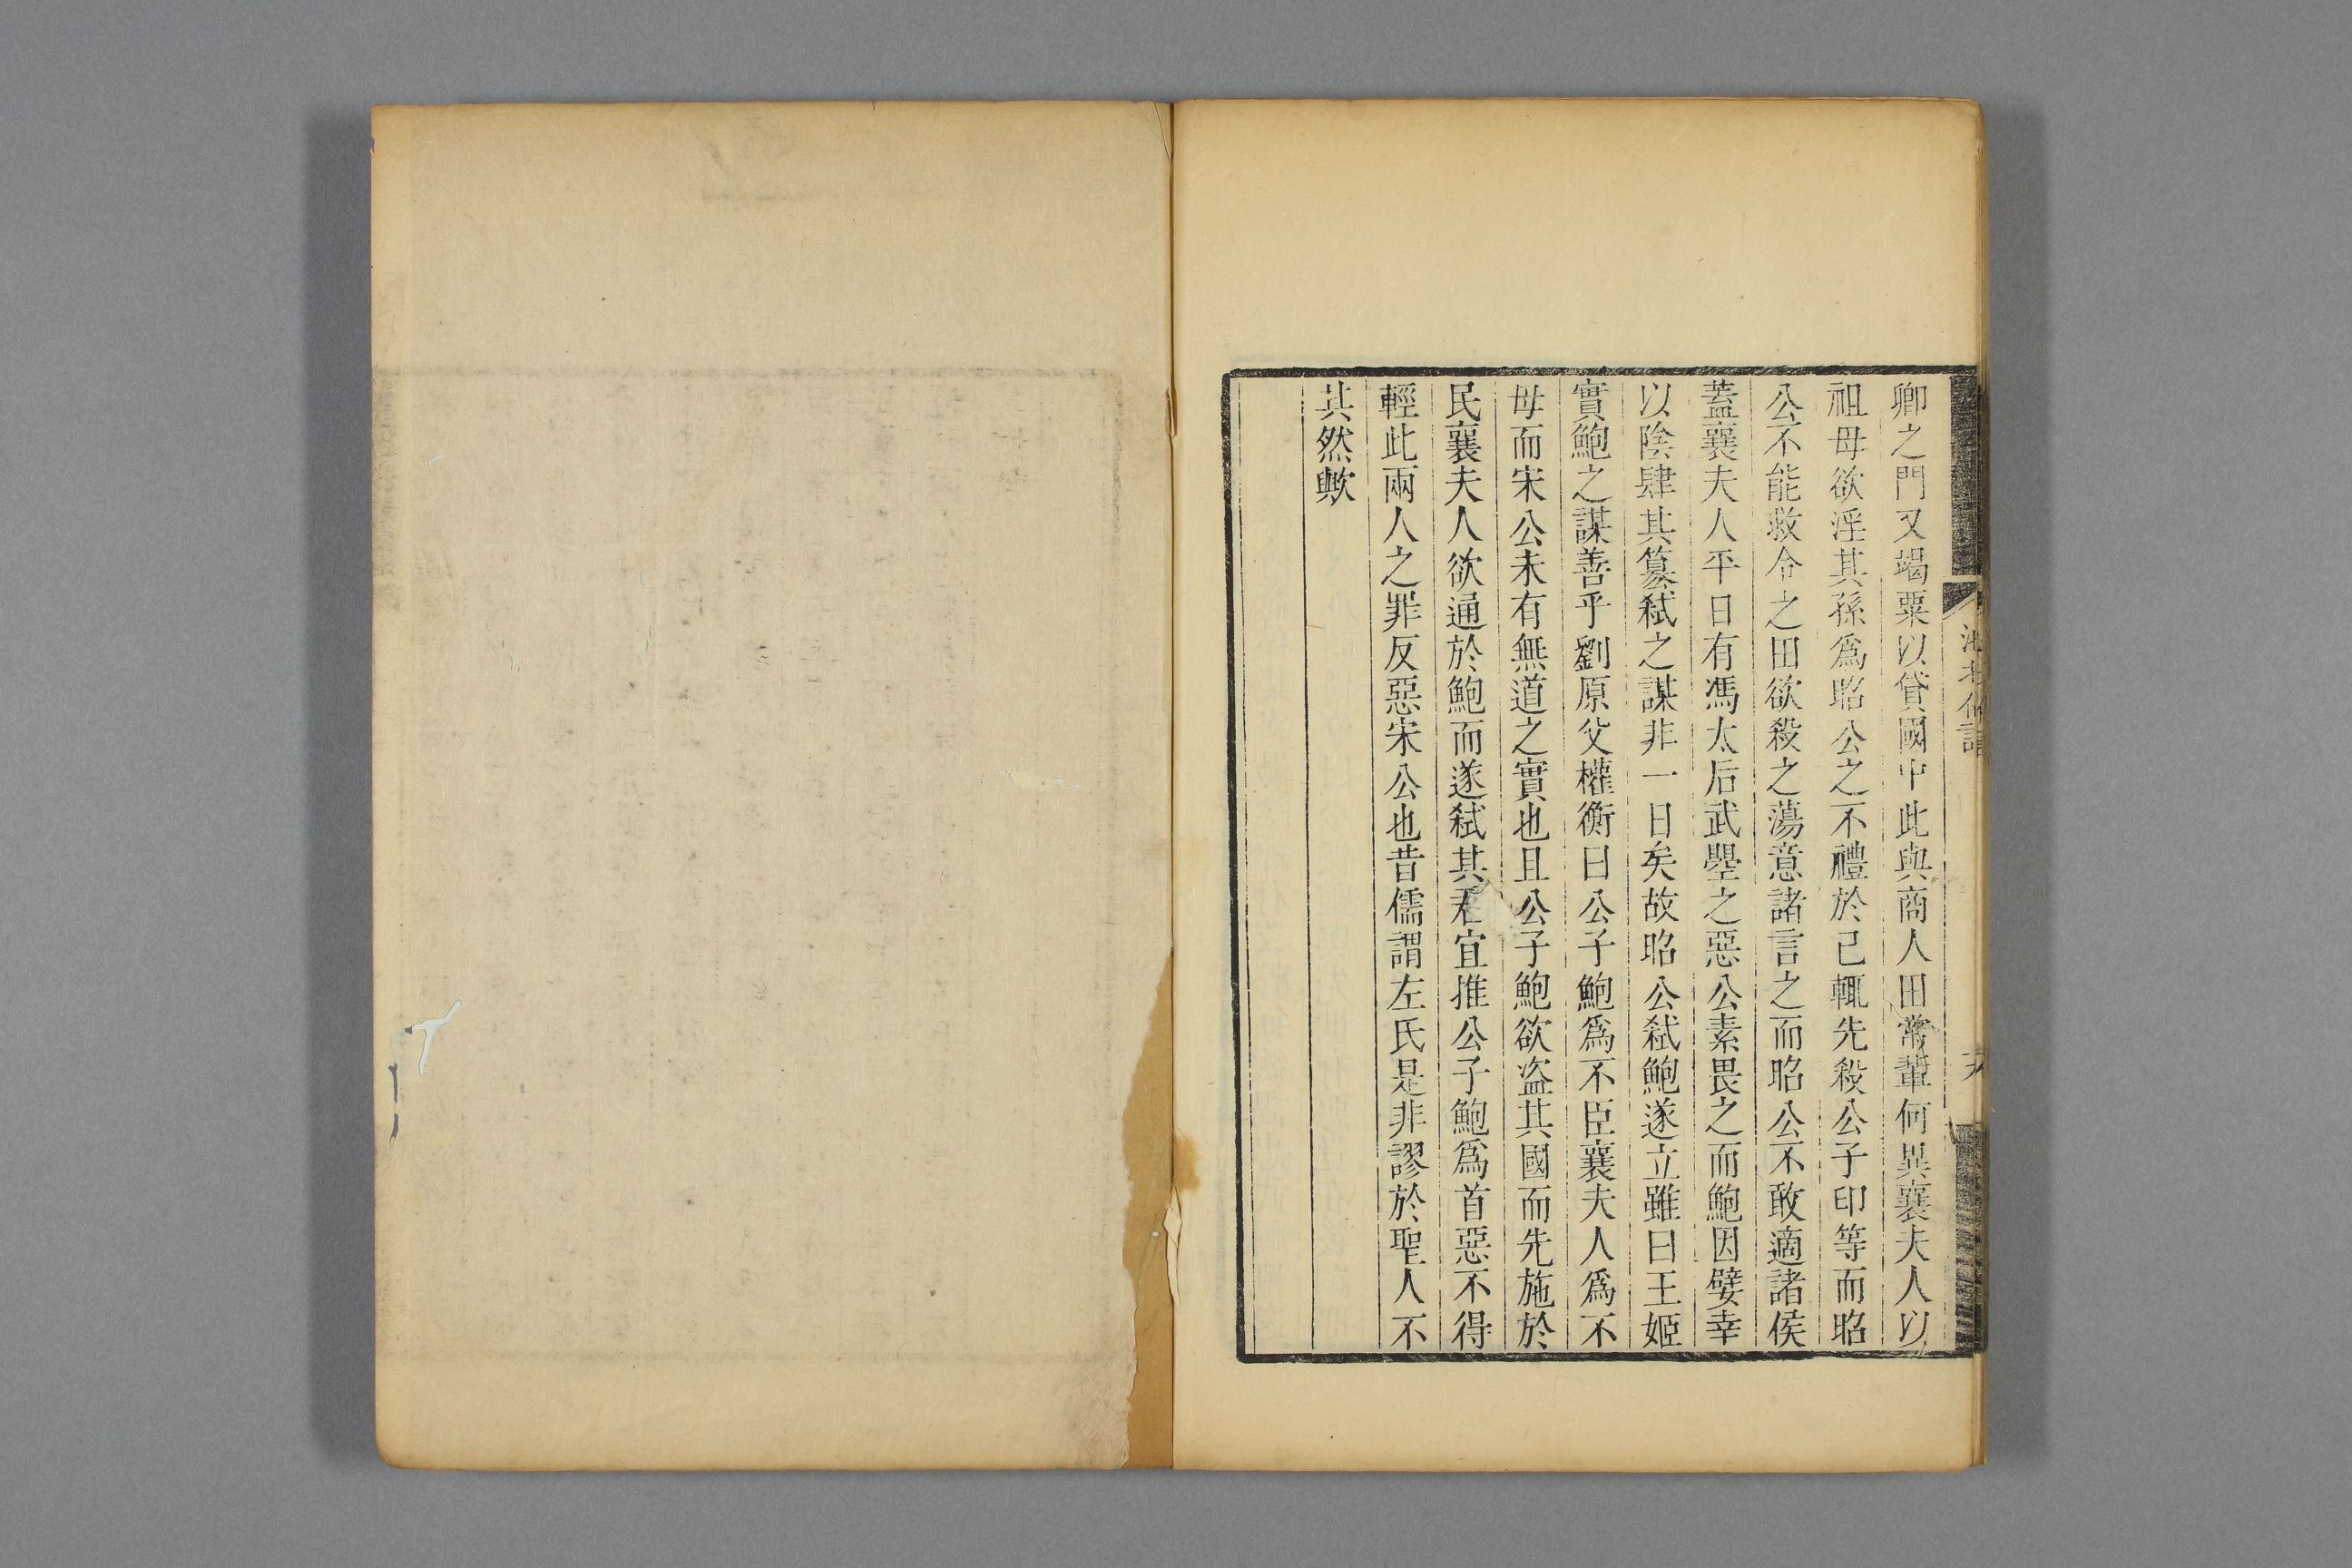 卿之門又竭粟以貸國中此與商人田常輩何異襄夫人以
祖母欲淫其孫爲昭公之不禮於己輒先殺公子印等而昭
公不能救令之田欲殺之蕩意諸言之而昭公不敢適諸侯
蓋襄夫人平日有馮太后武曌之惡公素畏之而鮑因嬖幸
以陰肆其篡弑之謀非一日矣故昭公弑鮑遂立雖曰王姬
實鮑之謀善乎劉原父權衡曰公子鮑爲不臣襄夫人爲不
母而宋公未有無道之實也且公子鮑欲盗其國而先施於
民襄夫人欲通於鮑而遂弑其君宜推公子鮑爲首惡不得
輕此兩人之罪反惡宋公也昔儒謂左氏是非謬於聖人不
其然歟
池北偶談